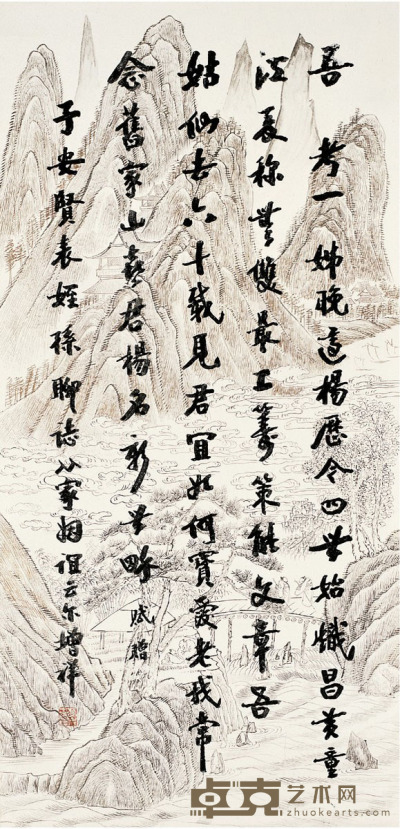 吾 考一姊晚適楊歷今四世始熾昌黃童
江夏稱無雙最工籌策能文章吾
姑仙去六十載見君宜如何寶愛老我常
念舊家山喜君楊名新世畍 賦贈
子安賢表姪孫聊誌家姻誼云尔增祥
卓克艺术网
zhuokearts.com